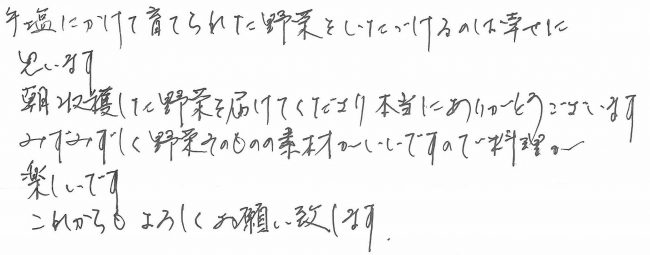 手塩にかけて育てられた野菜をいただけるのは幸せに
思います
朝収穫した野菜を届けてくださり本当にありがとうございます
みずみずしく野菜そのものの素材がいいですので料理が
楽しいです
これからもよろしくお願い致します.